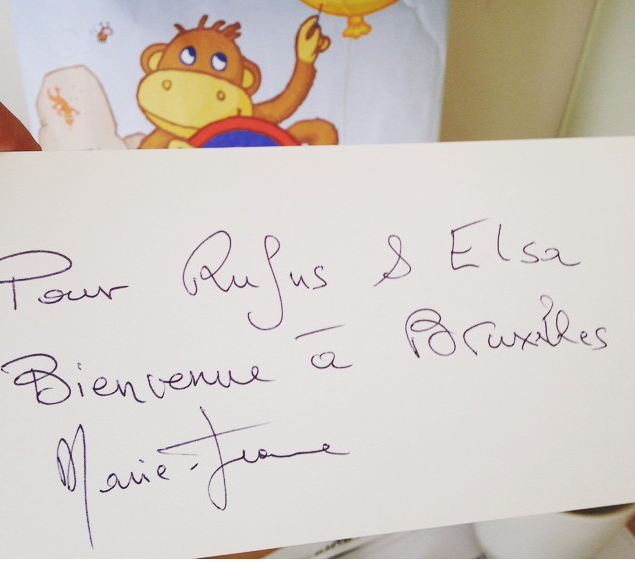 Pour Rufus & Elsa
Bienvenue à Bruxelles
Marie-Jeanne